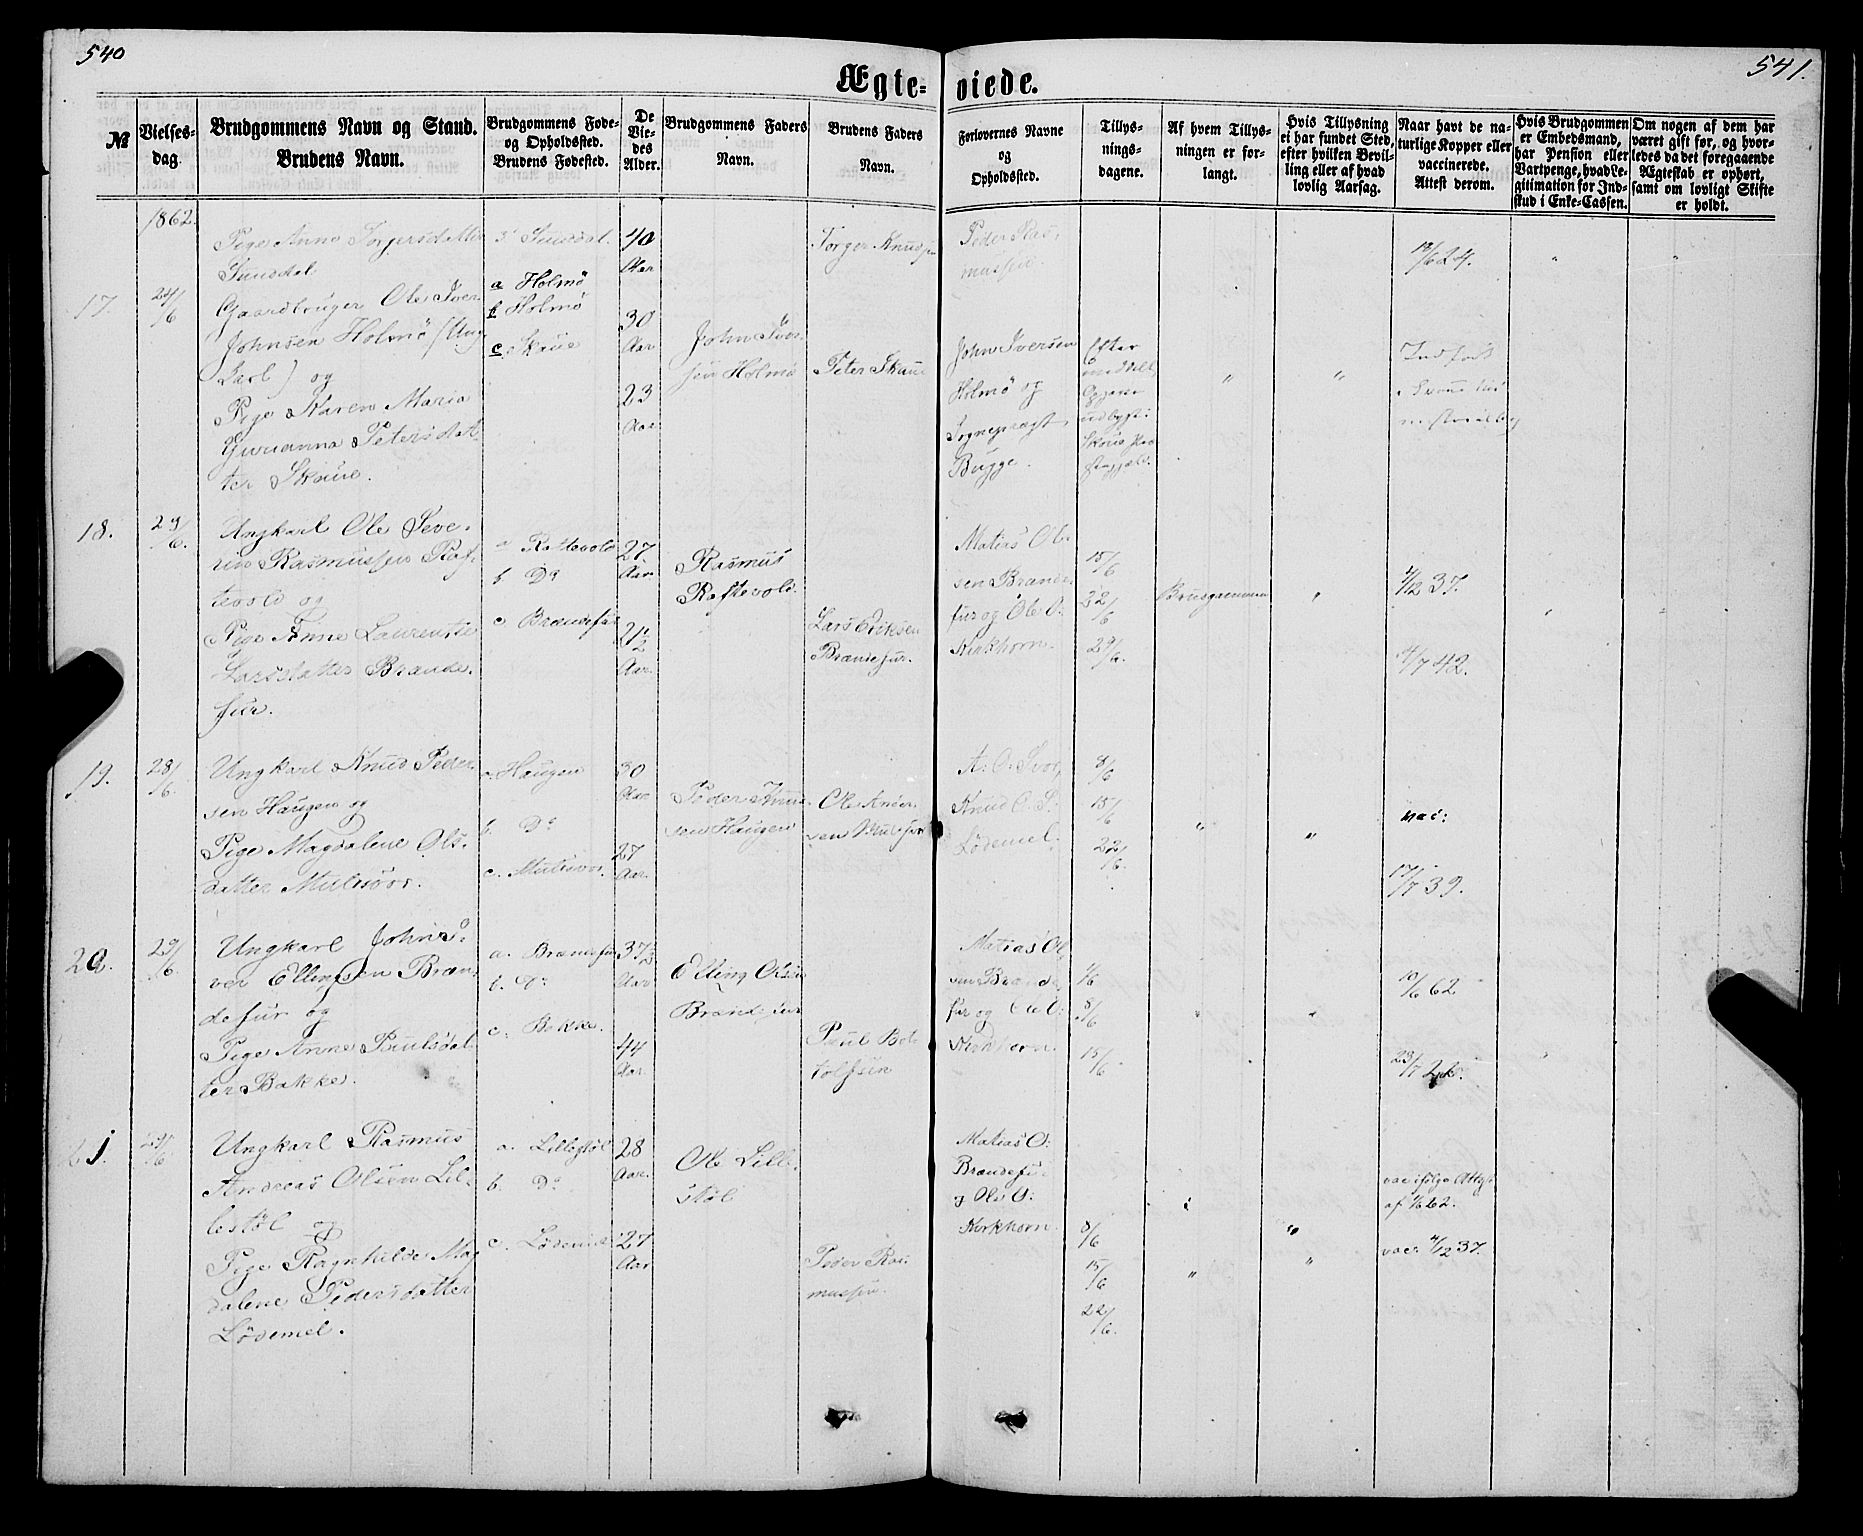 540
541.
Ægte-
viede.
№
Vielses-
dag.
Brudgommens Navn og Stand.
Brudens Navn.
Brudgommens Føde-
og Opholdssted.
Brudens Fødested.
De
Vie-
des
Alder.
Brudgommens Faders
Navn.
Brudens Faders
Navn.
Forlovernes Navne
og
Opholdssted.
Tillys-
nings-
dagene.
Af hvem Tillys-
ningen er for-
langt.
Hvis Tillysning
ei har fundet Sted,
efter hvilken Bevil-
ling eller af hvad
lovlig Aarsag.
Naar havt de na-
turlige Kopper eller
vaccinerede.
Attest derom.
Hvis Brudgommen
er Embedsmand,
har Pension eller
Vartpenge, hvad Le-
gitimation for Ind-
skud i Enke-Cassen.
Om nogen af dem har
været gift før, og hvor-
ledes da det foregaaende
Ægteskab er ophørt,
samt om lovligt Skifte
er holdt.
1862.
Pige Anne Torgersdatter
Sunddal
40
Aar
Torger Knudsen
Peder Ras-
mussen.
19/6 24.
17.
24/6
Gaardbruger Ole Iver
Johnsen Holmö (Ung-
karl) og
Pige Karen Maria
Petersdat-
ter Skaue.
a Holmö
b Holmö
c Skaue
30
Aar
23
Aar
John Iver-
sen Holmö
Peter Skaue
John Iversen
Holmö og
Sogneprest
Bugge.
Efter
18.
29/6.
Ungkarl Ole Seve-
rin Rasmussen Raf-
tevold og
Pige Anne Laurentse
Larsdatter Brande-
fur.
a Raftevold
b Do
c Brandefur
27
Aar
21½
Aar
Rasmus
Raftevold.
Lars Eriksen
Brandefur.
Matias Ol-
sen Brande-
fur og Ole O:
Kirkhorn.
15/6
22/6
29/6.
Brudgommen
4/12 37.
4/7 42.
19.
28/6.
Ungkarl Knud Peder-
sen Haugen og
Pige Magdalene Ols-
datter Mulsvor.
a. Haugen
b. Do
c. Mulsvor.
30
Aar
27
Aar.
Peder Knud-
sen Haugen
Ole Ander-
sen
A. O. Svor,
Knud O. S.
Lödemel.
8/6
15/6
22/6.
vac:
17/7 39.
20.
29/6.
Ungkarl John Si-
ver Ellingsen Bran-
defur og
Pige Anne Paulsdat-
ter Bakke.
a. Brandefur
b. Do
c. Bakke.
37½
Aar
44
Aar
Elling Olsen
Brandefur
Paul Bot-
tolfsen
Matias Ol-
sen Brande-
fur og Ole O:
Kirkhorn.
1/6
8/6
15/6
10/6 62
23/7 22.
21.
29/6
Ungkarl Rasmus
Andreas Olsen Lil-
lestöl og
Pige Ragnhilde Mag-
dalene Pedersdatter
Lödemel.
a. Lillestöl
b. Do
c. Lödemel
28
Aar.
27
Aar
Ole Lille-
stöl
Peder Ras-
mussen.
Matias O:
Brandefur
og Ole O:
Kirkhorn.
8/6
15/6
22/6.
vac ifölge Attest
af 1/6 62.
vac: 4/12 37.